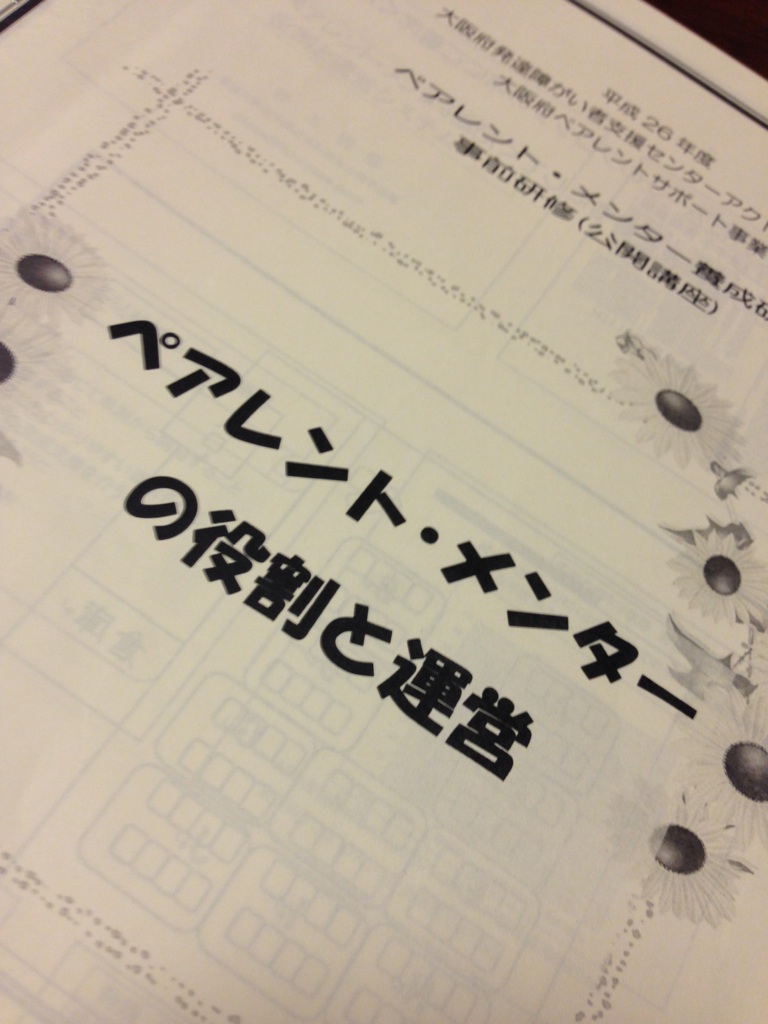 平成26年度
大阪府発達障がい者支援センターアクト
大阪府ペアレントサポート事業
ペアレント・メンター養成研
事前研修(公開講座)
ペアレント・メンター
の役割と運営